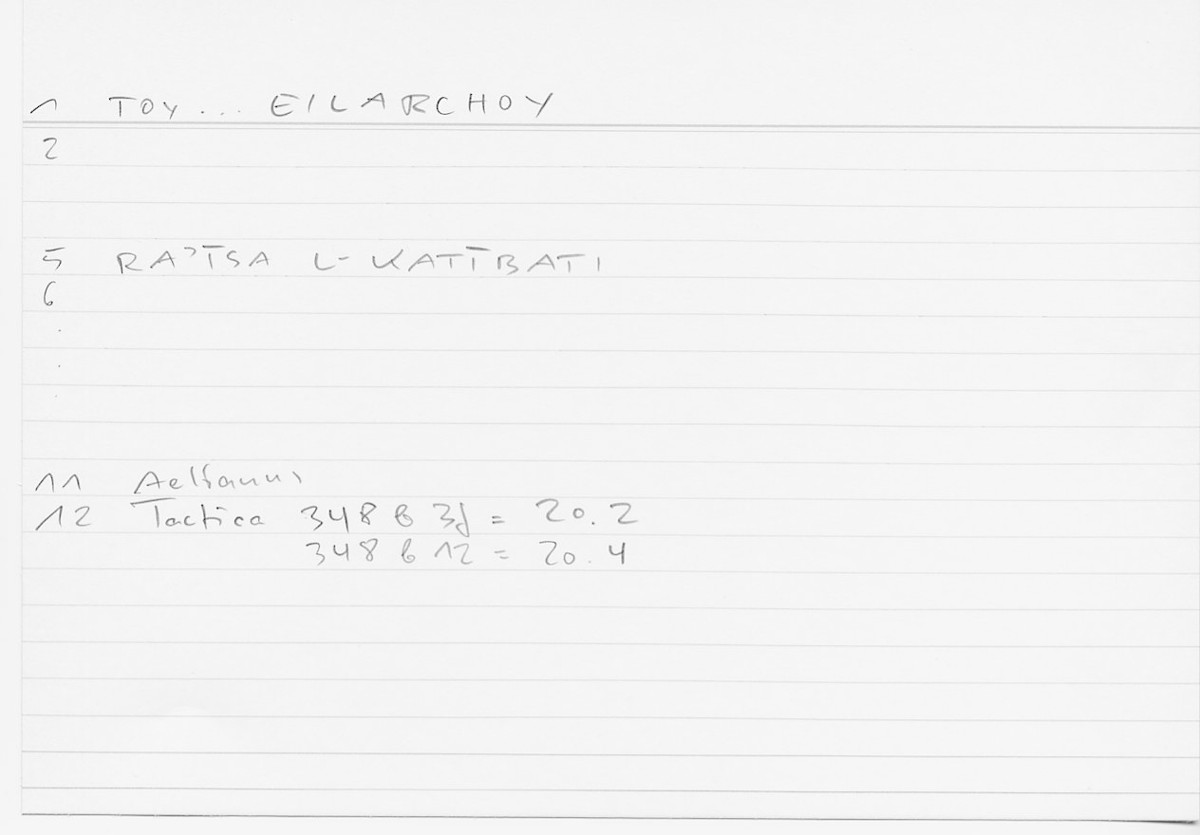 1 TOY ... EILARCHOY
2
5 RAʾĪSA L-KATĪBATI
6
.
.
.
11 Aelianus
12 Tactica 348 b 3f = 20.2
348 b 12 = 20.4